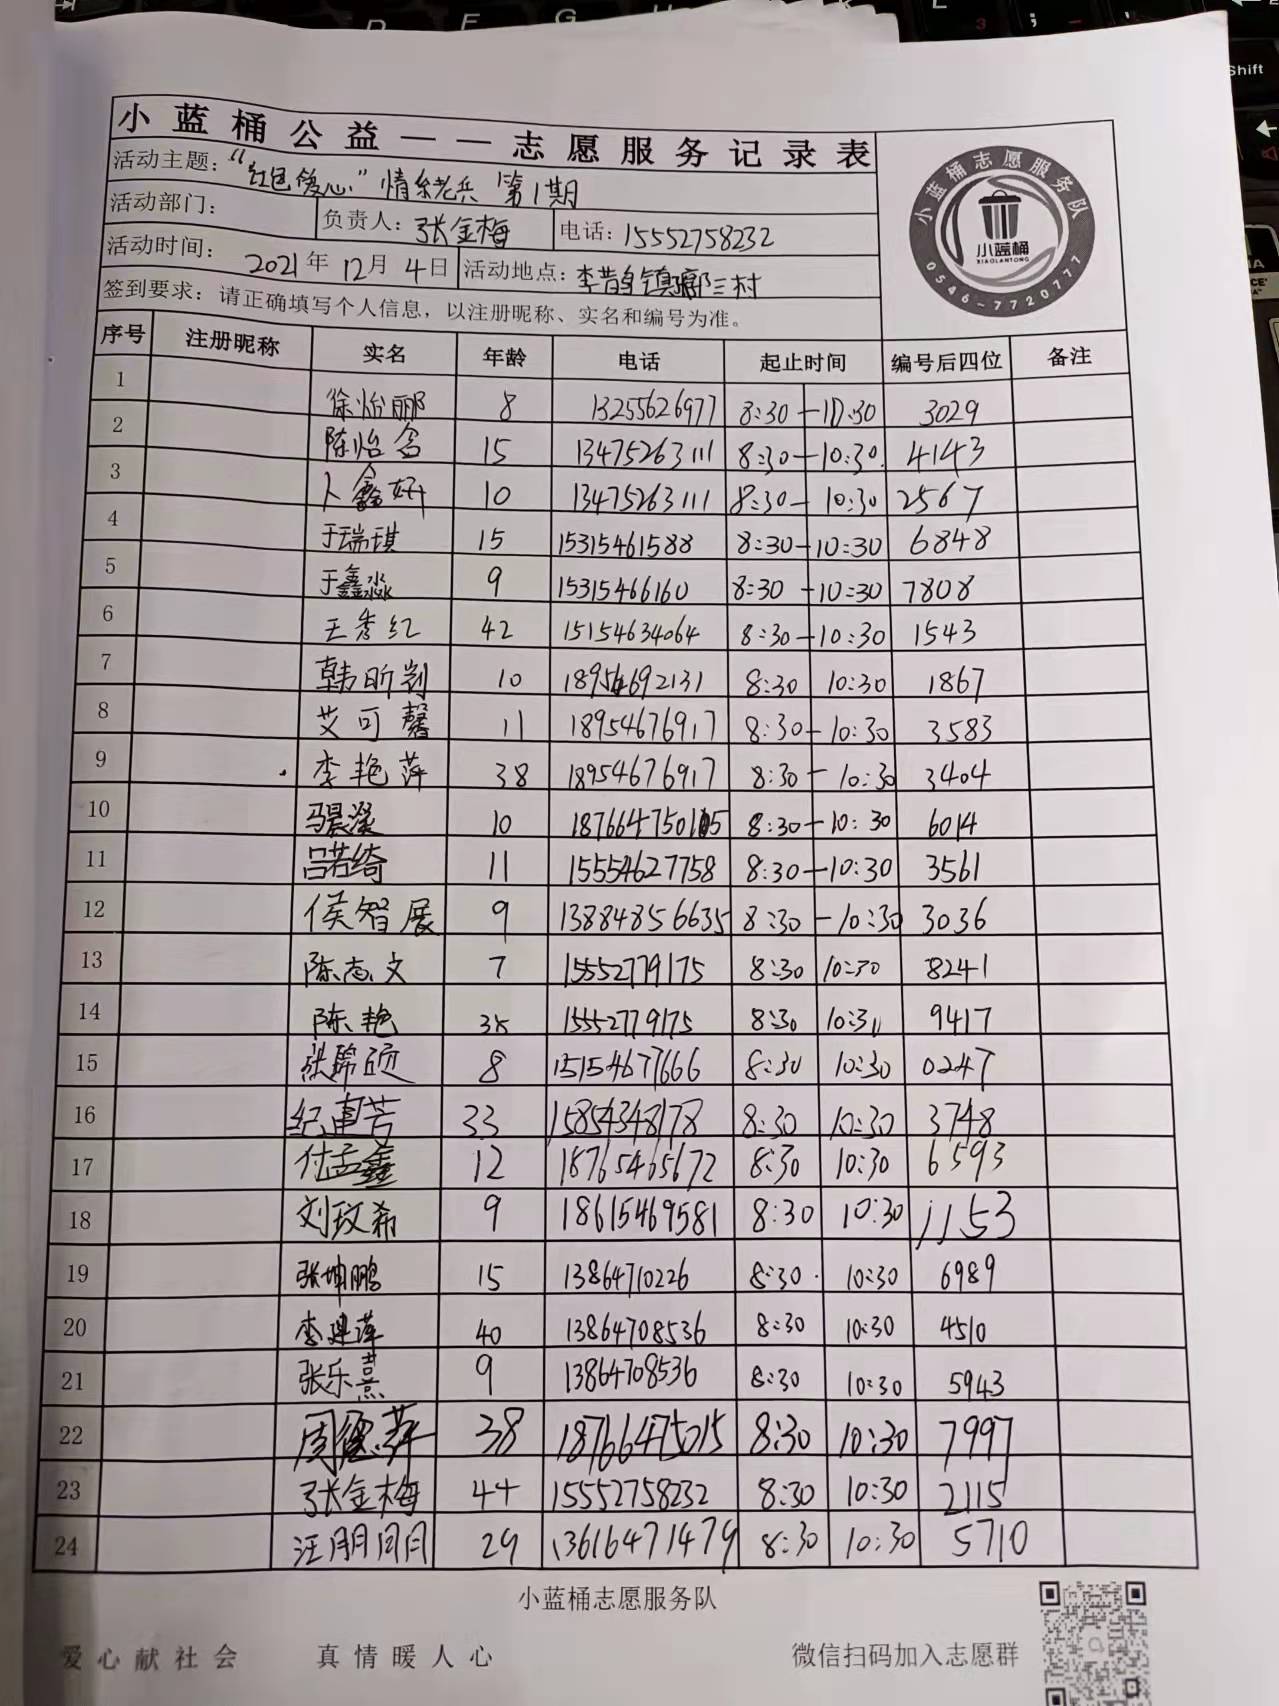 小蓝桶公益——志愿服务记录表
活动主题：“红色爱心”情系老兵 第1期
活动部门： 负责人：张金梅 电话：15552758232
活动时间： 2021年12月4日 活动地点：李鹊镇郭三村
签到要求：请正确填写个人信息，以注册昵称、实名和编号为准。
小蓝桶志愿服务队
小蓝桶
XIAOLANTONG
0546-7720777
序号 注册昵称 实名 年龄 电话 起止时间 编号后四位 备注
1 徐怡郦 8 13255626977 8:30—10:30 3029
2 陈怡含 15 13475263111 8:30—10:30 4143
3 卜鑫妤 10 13475263111 8:30—10:30 2567
4 于瑞琪 15 15315461588 8:30—10:30 6848
5 于鑫淼 9 15315466160 8:30—10:30 7808
6 王秀红 42 15154634064 8:30—10:30 1543
7 韩昕 10 18954692131 8:30 10:30 1867
8 艾可馨 11 18954676917 8:30—10:30 3583
9 李艳萍 38 18954676917 8:30—10:30 3404
10 马晨溪 10 8:30—10:30 6014
11 吕若绮 11 15554627758 8:30—10:30 3561
12 侯智展 9 13884856635 8:30—10:30 3036
13 陈志文 7 15552779175 8:30 10:30 8241
14 陈艳 15552779175 8:30 10:30 9417
15 张 硕 8 15154677666 8:30 10:30 0247
16 纪建芳 33 15854348178 8:30 10:30 3748
17 付孟鑫 12 18765465672 8:30 10:30 6593
18 刘玟希 9 18615469581 8:30 10:30 1153
19 张坤鹏 15 13864710226 8:30 10:30 6989
20 李建萍 40 13864708536 8:30 10:30 4510
21 张乐熹 9 13864708536 8:30 10:30 5943
22 周德萍 38 18766475015 8:30 10:30 7997
23 张金梅 44 15552758232 8:30 10:30 2115
24 汪朋 29 13616471479 8:30 10:30 5710
小蓝桶志愿服务队
爱心献社会 真情暖人心 微信扫码加入志愿群